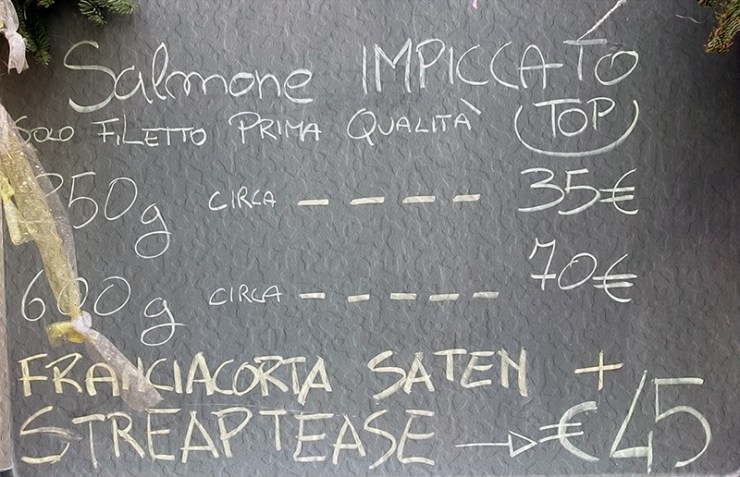 Salmone IMPICCATO
SOLO FILETTO PRIMA QUALITÀ (TOP)
350g CIRCA - - - - 35€
600g CIRCA - - - - - 70€
FRANCIACORTA SATEN +
STREAPTEASE → €45